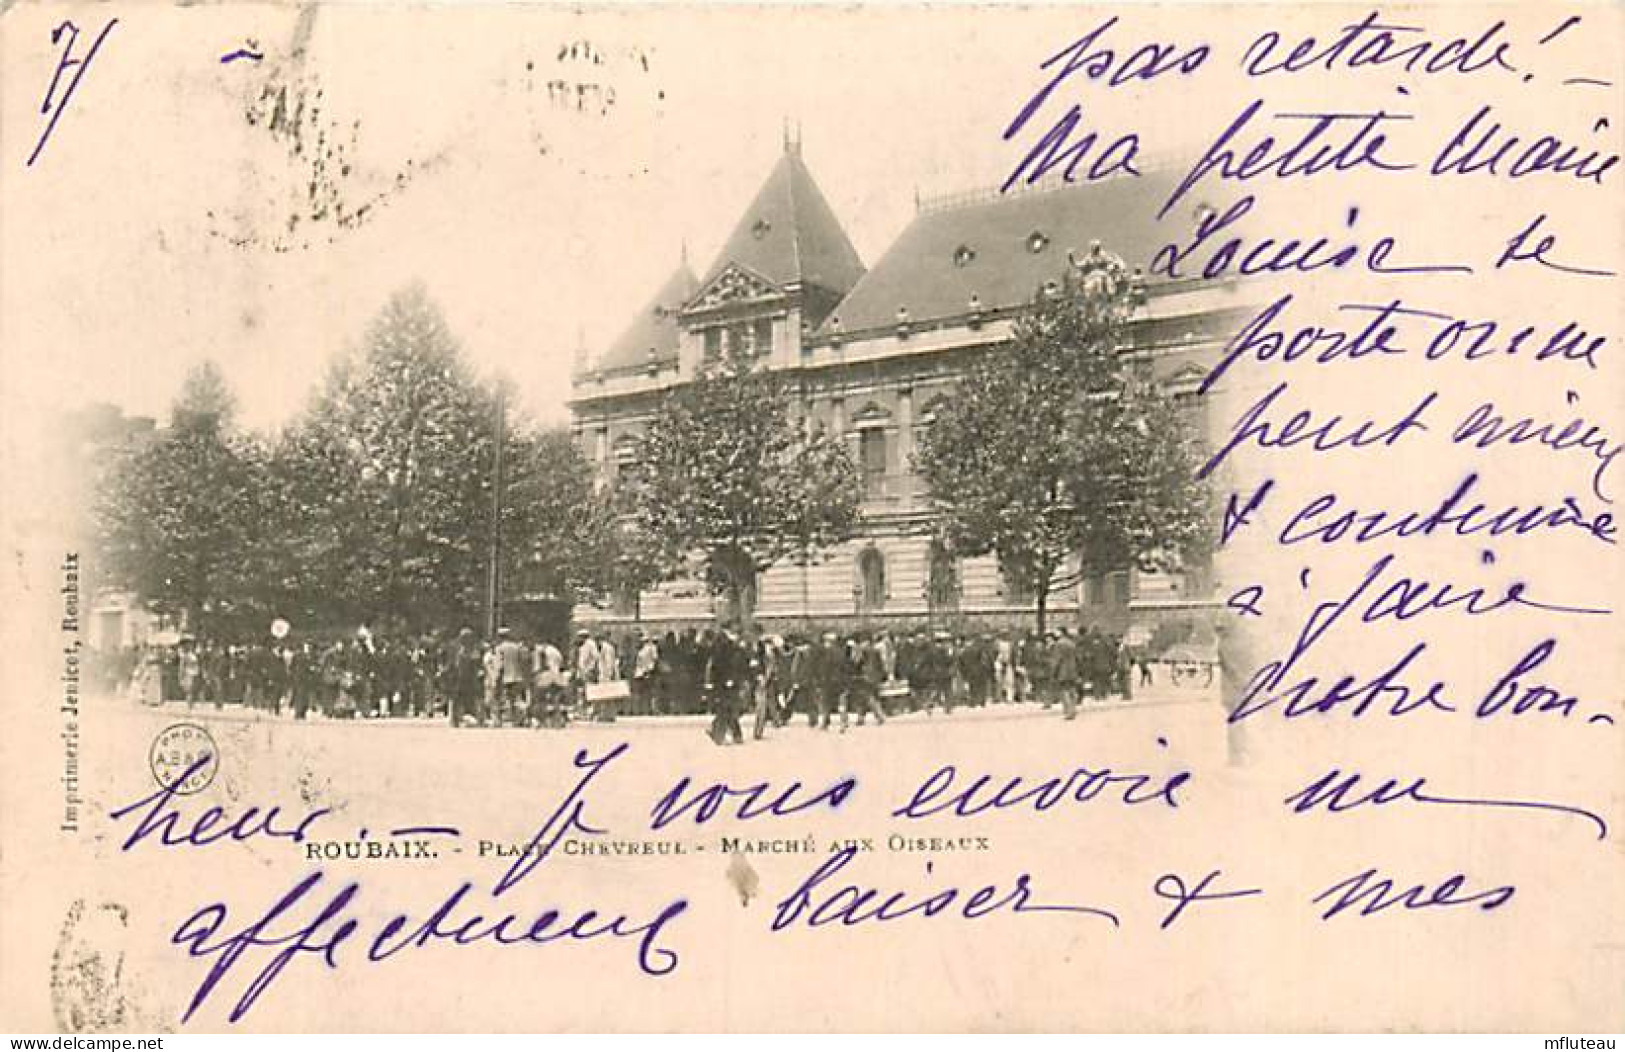 7/ -
pas retardé! -
Ma petite Marie
Louise se
porte on ne
peut mieux
& continue
à faire
notre bon-
heur. - Je vous envoie un
ROUBAIX. - PLACE CHEVREUL - MARCHÉ AUX OISEAUX
affectueux baiser & mes
Imprimerie Jenicot, Roubaix
PHOT
A.B & C
NANCY
delcampe.net
mfluteau